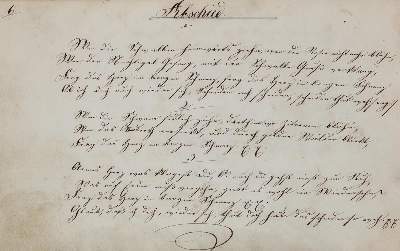 6.
Abschied.
1.
Wenn die Schwalben heimwärts ziehn, wenn die Rosen nicht mehr blühn,
Wenn der Nachtigall Gesang, mit der Nachtigall
Fragt das Herz in bangem Schmerz, fragt das Herz in bangem Schmerz
Ob ich dich auch wiederseh, Scheiden ach Scheiden, Scheiden thut weh
2.
Wenn die Schwäne südlich ziehn, dorthin wo Zitronen blühn,
Wenn das Abendroth versinkt, und durch grüne Wälder blinkt,
Fragt das Herz in bangem Schmerz
3.
Armes Herz was klagest du, O auch du gehst einst zur Ruh,
Was auf Erden muß vergehn, giebt es wohl ein Wiedersehn,
Fragt das Herz in bangem Schmerz